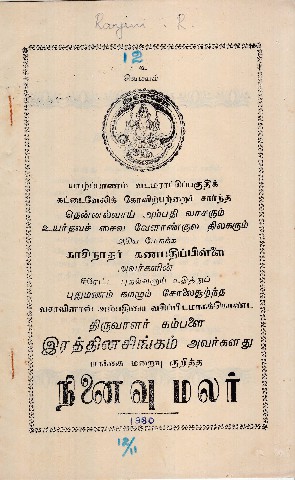 Rajini . R.
12
உ
சிவமயம்
யாழ்ப்பாணம் வடமராட்சிப்பகுதிக்
கட்டைவேலிக் கோவிற்பற்றைச் சார்ந்த
தென்னல்வாய் அம்பதி வாசரும்
உயர்தவச் சைவ வேளாண்குல திலகரும்
காசிநாதர் கணபதிப்பிள்ளை
அவர்களின்
புதுமணம் கமழும் சோலைசூழ்ந்த
திருவாளர் கம்பளை
இரத்தினசிங்கம் அவர்களது
மறைவு குறித்த
நினைவு மலர்
1980
12/11